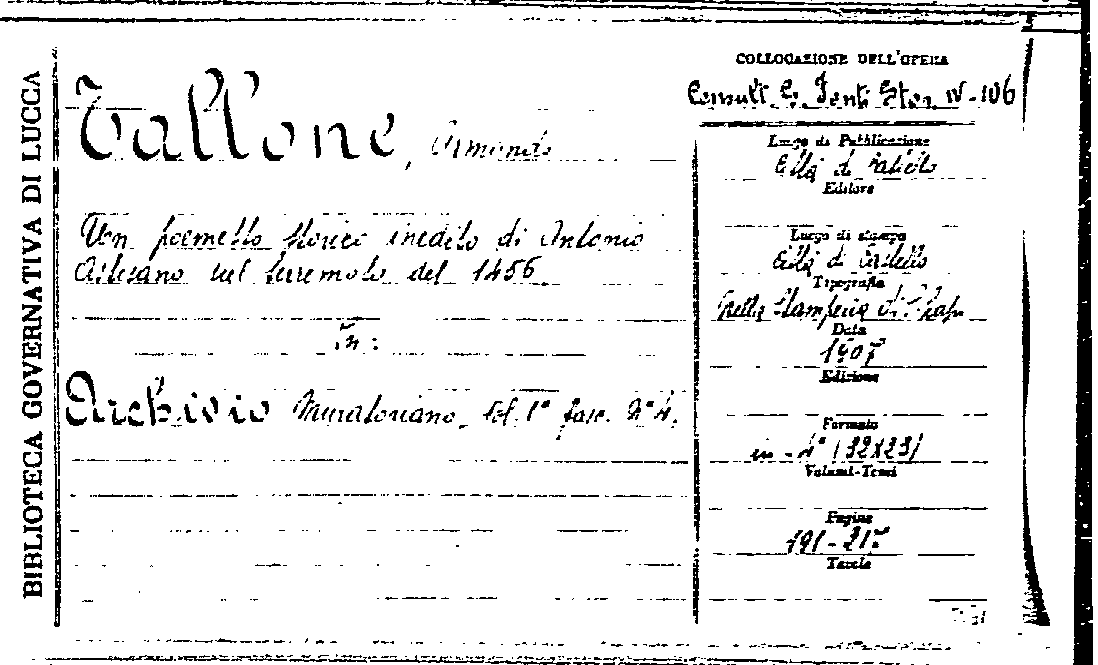 BIBLIOTECA GOVERNATIVA DI LUCCA
Tallone, Armando
Un poemetto storico inedito di Antonio
Astesano sul terremoto del 1456.
In:
Archivio Muratoriano. Vol. 1° fasc. N° 4.
COLLOCAZIONE DELL'OPERA
Consult. C. Font. Stor. IV - 106
Luogo di Pubblicazione
Città di Castello
Editore
Luogo di stampa
Città di Castello
Tipografia
Nella Stamperia di S. Lapi
Data
1907
Edizione
Formato
in - 4° (32x23)
Volumi-Tomi
Pagine
191 - 217
Tavole